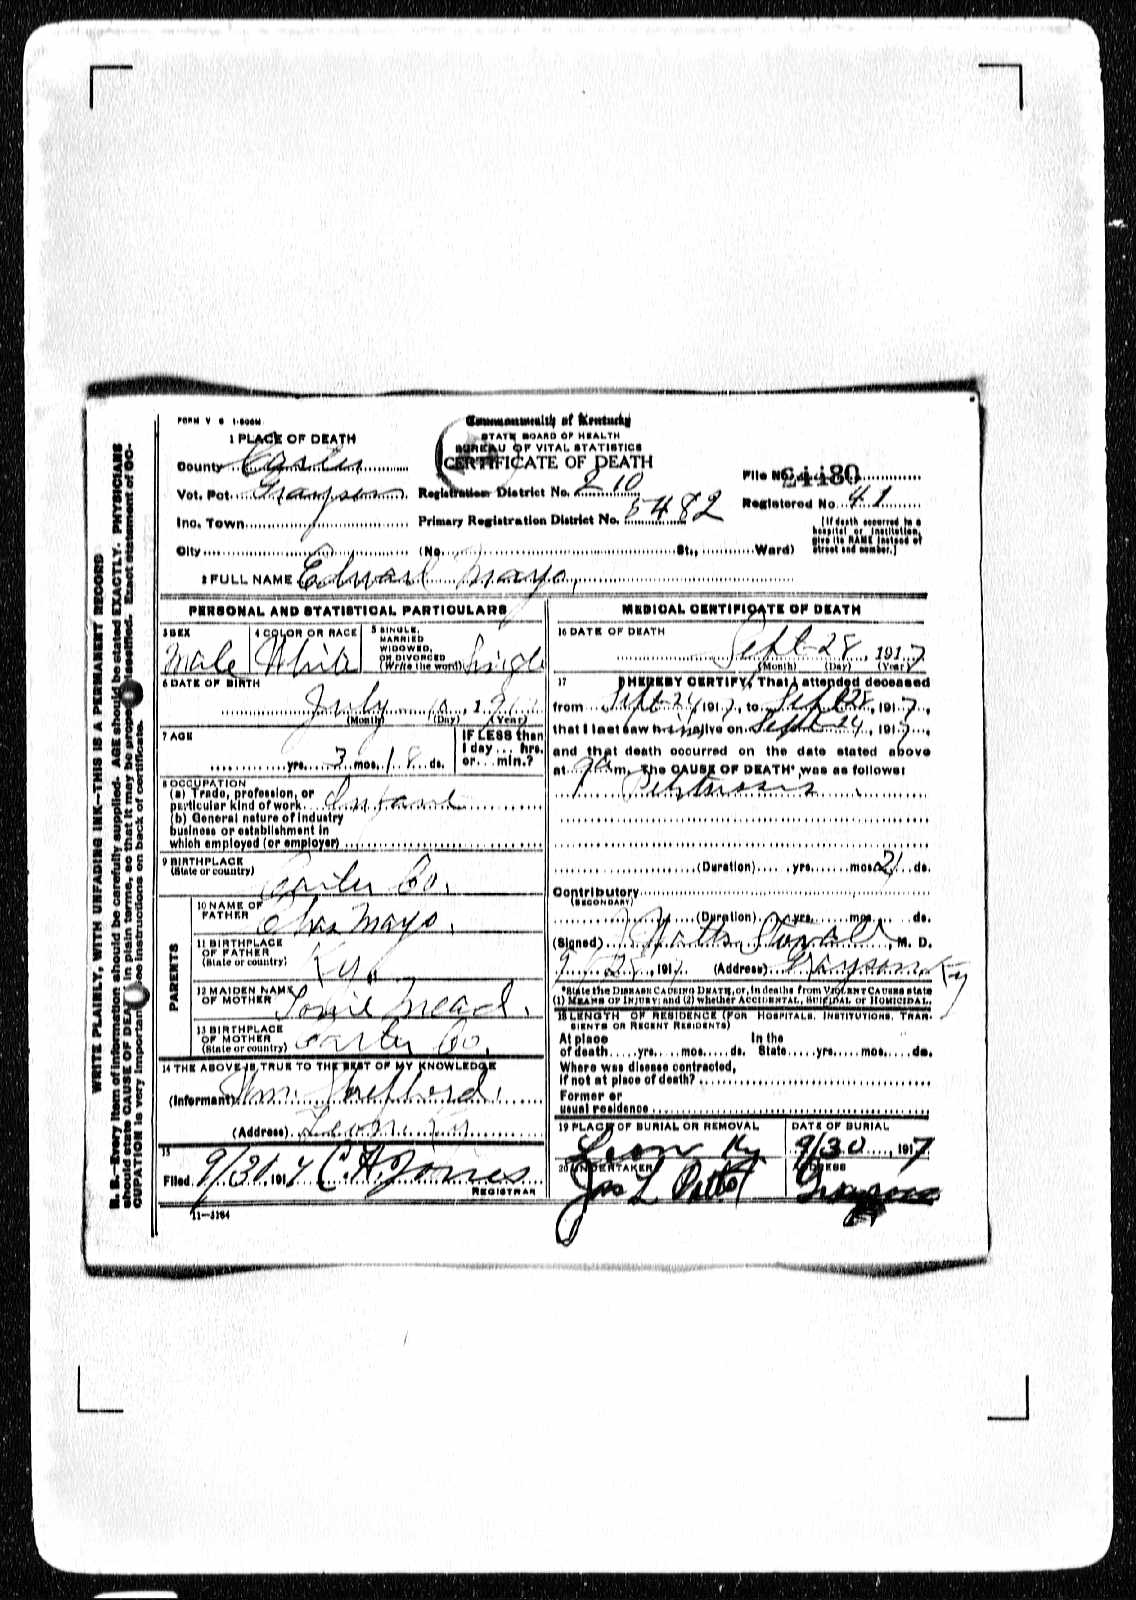 FORM V S 1-500M
Commonwealth of Kentucky
STATE BOARD OF HEALTH
BUREAU OF VITAL STATISTICS
CERTIFICATE OF DEATH
1 PLACE OF DEATH
County Carter
Vot. Pct. Grayson
Inc. Town
City (No. St., Ward)
Registration District No. 210
Primary Registration District No. 5482
File No. 24480
Registered No. 41
[If death occurred in a hospital or institution, give its NAME instead of street and number.]
2 FULL NAME Edward Mayo,
PERSONAL AND STATISTICAL PARTICULARS
3 SEX Male
4 COLOR OR RACE White
5 SINGLE, MARRIED WIDOWED, OR DIVORCED (Write the word) Single
6 DATE OF BIRTH
July 10, 191
(Month) (Day) (Year)
7 AGE
yrs. 3 mos. 18 ds.
IF LESS than 1 day ... hrs. or ... min.?
8 OCCUPATION
(a) Trade, profession, or particular kind of work Infant
(b) General nature of industry business or establishment in which employed (or employer)
9 BIRTHPLACE
(State or country) Carter Co.
PARENTS
10 NAME OF FATHER Mayo.
11 BIRTHPLACE OF FATHER (State or country) Ky.
12 MAIDEN NAME OF MOTHER Mead.
13 BIRTHPLACE OF MOTHER (State or country) Carter Co.
14 THE ABOVE IS TRUE TO THE BEST OF MY KNOWLEDGE
(Informant) Wm
(Address) Leon Ky
15
Filed 9/30 1917 C. H. Jones
REGISTRAR
11-3184
MEDICAL CERTIFICATE OF DEATH
16 DATE OF DEATH
Sept-28, 1917
(Month) (Day) (Year)
17 I HEREBY CERTIFY, That I attended deceased
from Sept-24, 1917, to Sept 28, 1917,
that I last saw him alive on Sept-24, 1917,
and that death occurred on the date stated above
at 9 a m. The CAUSE OF DEATH* was as follows:
Pertussis
(Duration) yrs. mos. 21 ds.
Contributory
(SECONDARY)
(Duration) yrs. mos. ds.
(Signed) J Watts Stovall, M. D.
9/28, 1917 (Address) Grayson, Ky
*State the DISEASE CAUSING DEATH, or, in deaths from VIOLENT CAUSES state
(1) MEANS OF INJURY; and (2) whether ACCIDENTAL, SUICIDAL or HOMICIDAL.
18 LENGTH OF RESIDENCE (FOR HOSPITALS, INSTITUTIONS, TRANSIENTS OR RECENT RESIDENTS)
At place of death yrs. mos. ds. In the State yrs. mos. ds.
Where was disease contracted,
if not at place of death?
Former or
usual residence
19 PLACE OF BURIAL OR REMOVAL
Leon Ky
DATE OF BURIAL
9/30, 1917
20 UNDERTAKER
Jas L
ADDRESS
Grayson
WRITE PLAINLY, WITH UNFADING INK—THIS IS A PERMANENT RECORD
N. B.—Every item of information should be carefully supplied. AGE should be stated EXACTLY. PHYSICIANS
should state CAUSE OF DEATH in plain terms, so that it may be properly classified. Exact statement of OC-
CUPATION is very important. See instructions on back of certificate.